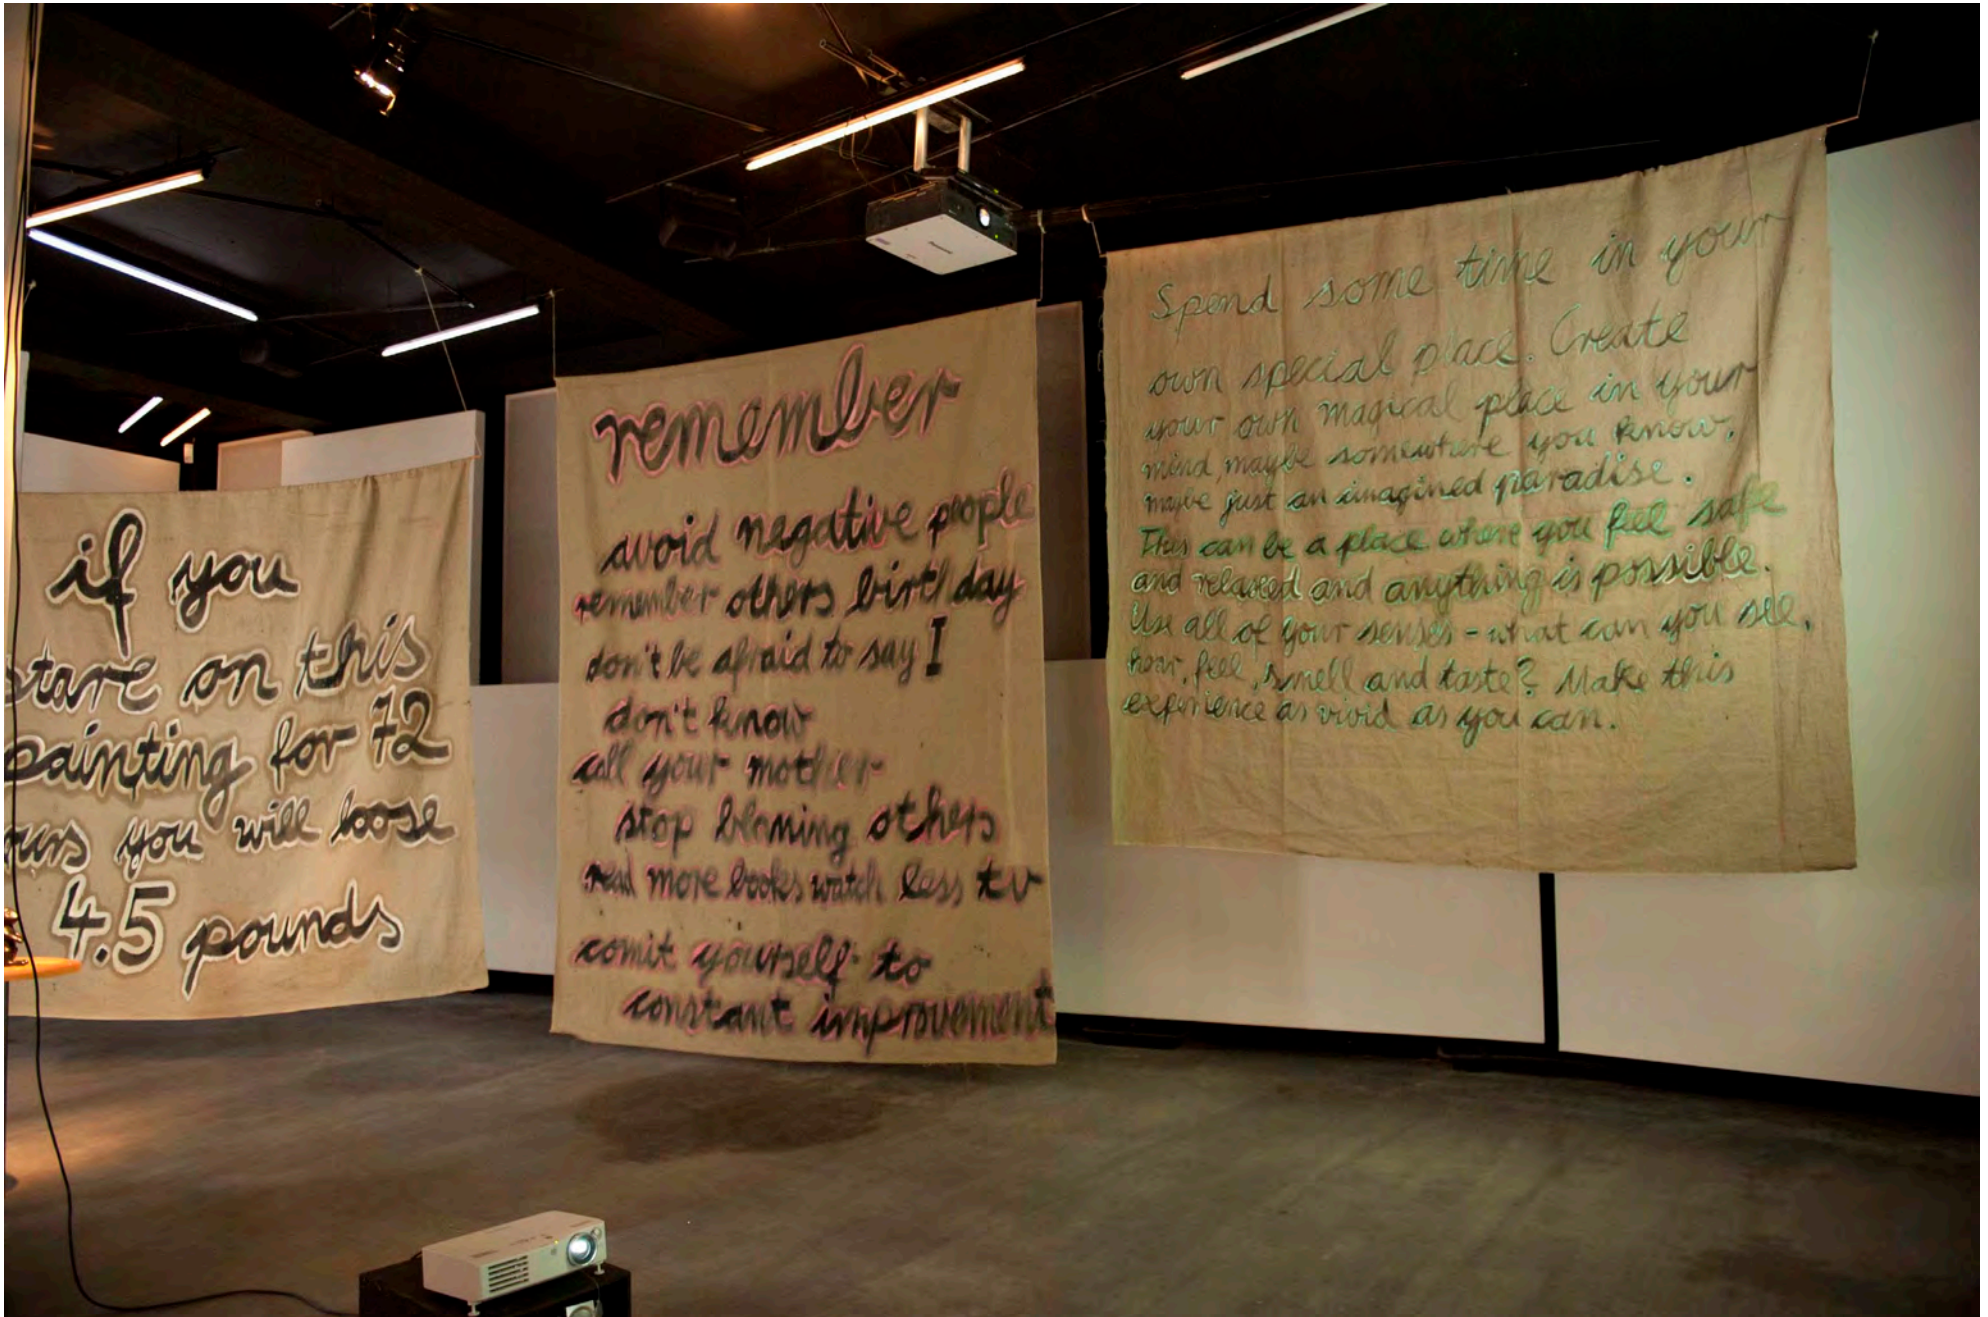 if you
stare on this
painting for 72
ours you will loose
4.5 pounds
remember
avoid negative people
remember others birthday
don't be afraid to say I
don't know
call your mother
stop blaming others
read more books watch less tv
comit yourself to
constant improvement
Spend some time in your
own special place. Create
your own magical place in your
mind, maybe somewhere you know,
maybe just an imagined paradise.
This can be a place where you feel safe
and relaxed and anything is possible.
Use all of your senses - what can you see,
hear, feel, smell and taste? Make this
experience as vivid as you can.
Panasonic